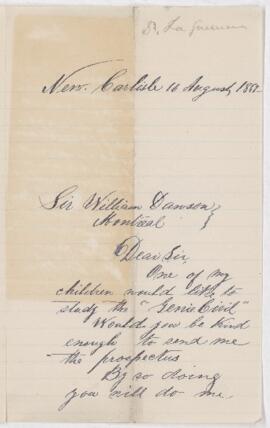 New Carlisle 16 August,
Sir William Dawson }
Montreal
Dear Sir,
One of my
children would like to
study the "Genie Civil"
Would you be kind
enough to send me
the prospectus
By so doing
you will do me